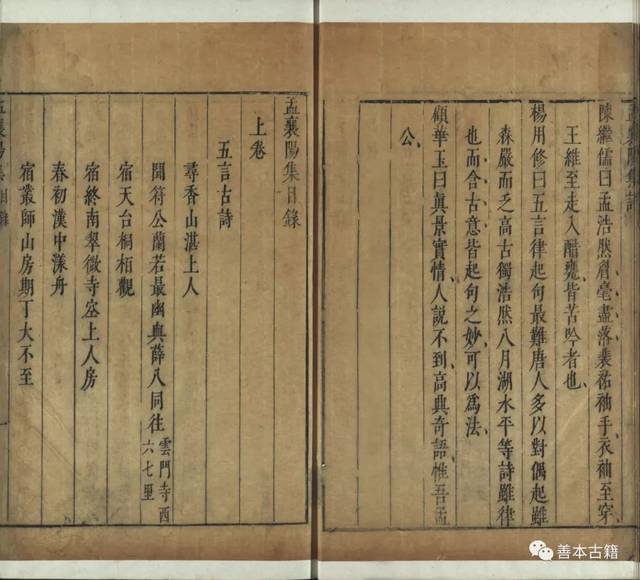 陳繼儒曰孟浩然眉毫盡落裴祐袖手衣袖至穿
王維至走入醋甕皆苦吟者也
楊用修曰五言律起句最難唐人多以對偶起雖
森嚴而乏高古獨浩然八月湖水平等詩雖律
也而含古意皆起句之妙可以為法
顧華玉曰真景實情人說不到高典奇語惟吾孟
公
孟襄陽集目錄
上卷
五言古詩
尋香山湛上人
聞符公蘭若最幽與薛八同往 雲門寺西六七里
宿天台桐栢觀
宿終南翠微寺
空上人房
春初漢中漾舟
宿叢師山房期丁大不至
善本古籍